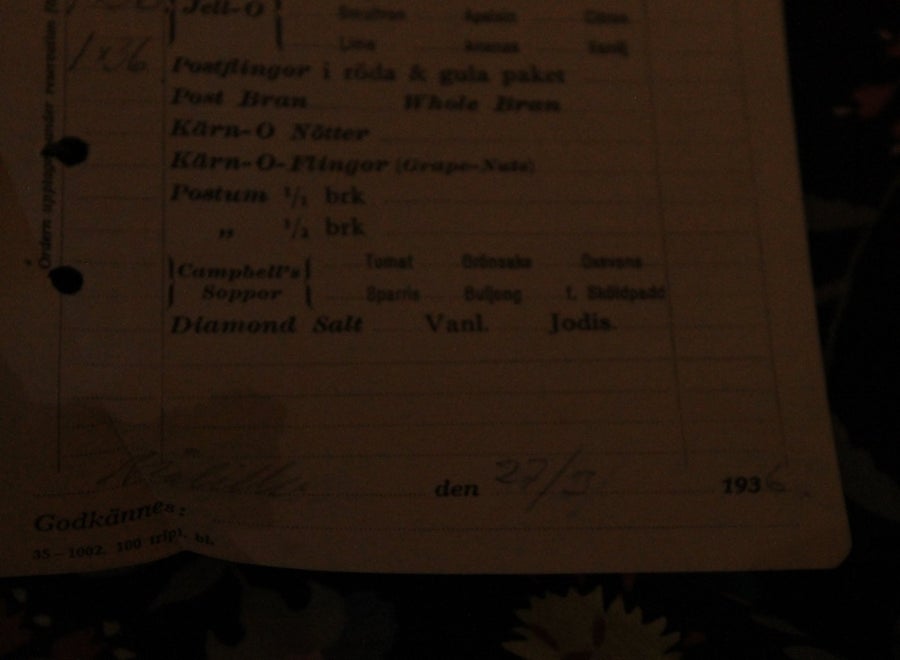 Jell-O Apelsin Citron
Lime Ananas Vanilj
1x36 Postflingor i röda & gula paket
Post Bran Whole Bran
Kärn-O Nötter
Kärn-O-Flingor (Grape-Nuts)
Postum 1/1 brk
„ 1/2 brk
Campbell's Tomat Grönsaks Oxsvans
Soppor Sparris Buljong f. Sköldpadd
Diamond Salt Vanl. Jodis.
den 27/3 1936
Godkännes:
35—1002. 100 tripl. bl.
Ordern upptagen under reservation